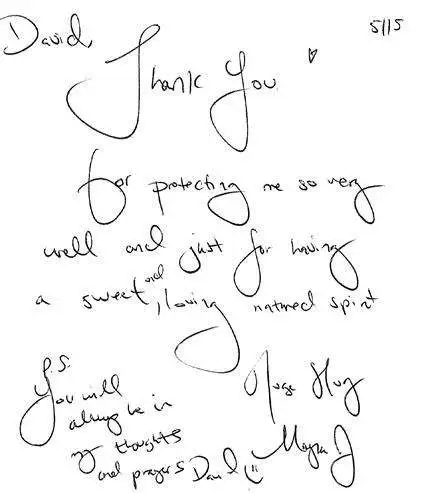 David,
5/15
Thank You
for protecting me so very
well and just for having
a sweet and, loving natured spirit
P.S.
You will
always be in
my thoughts
and prayers David
Huge Hug